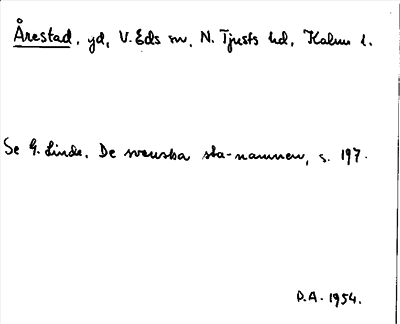 Årestad, yd, V. Eds sn, N. Tjusts hd, Kalm l.
Se G. Linde, De svenska sta-namnen, s. 197.
D.A. 1954.